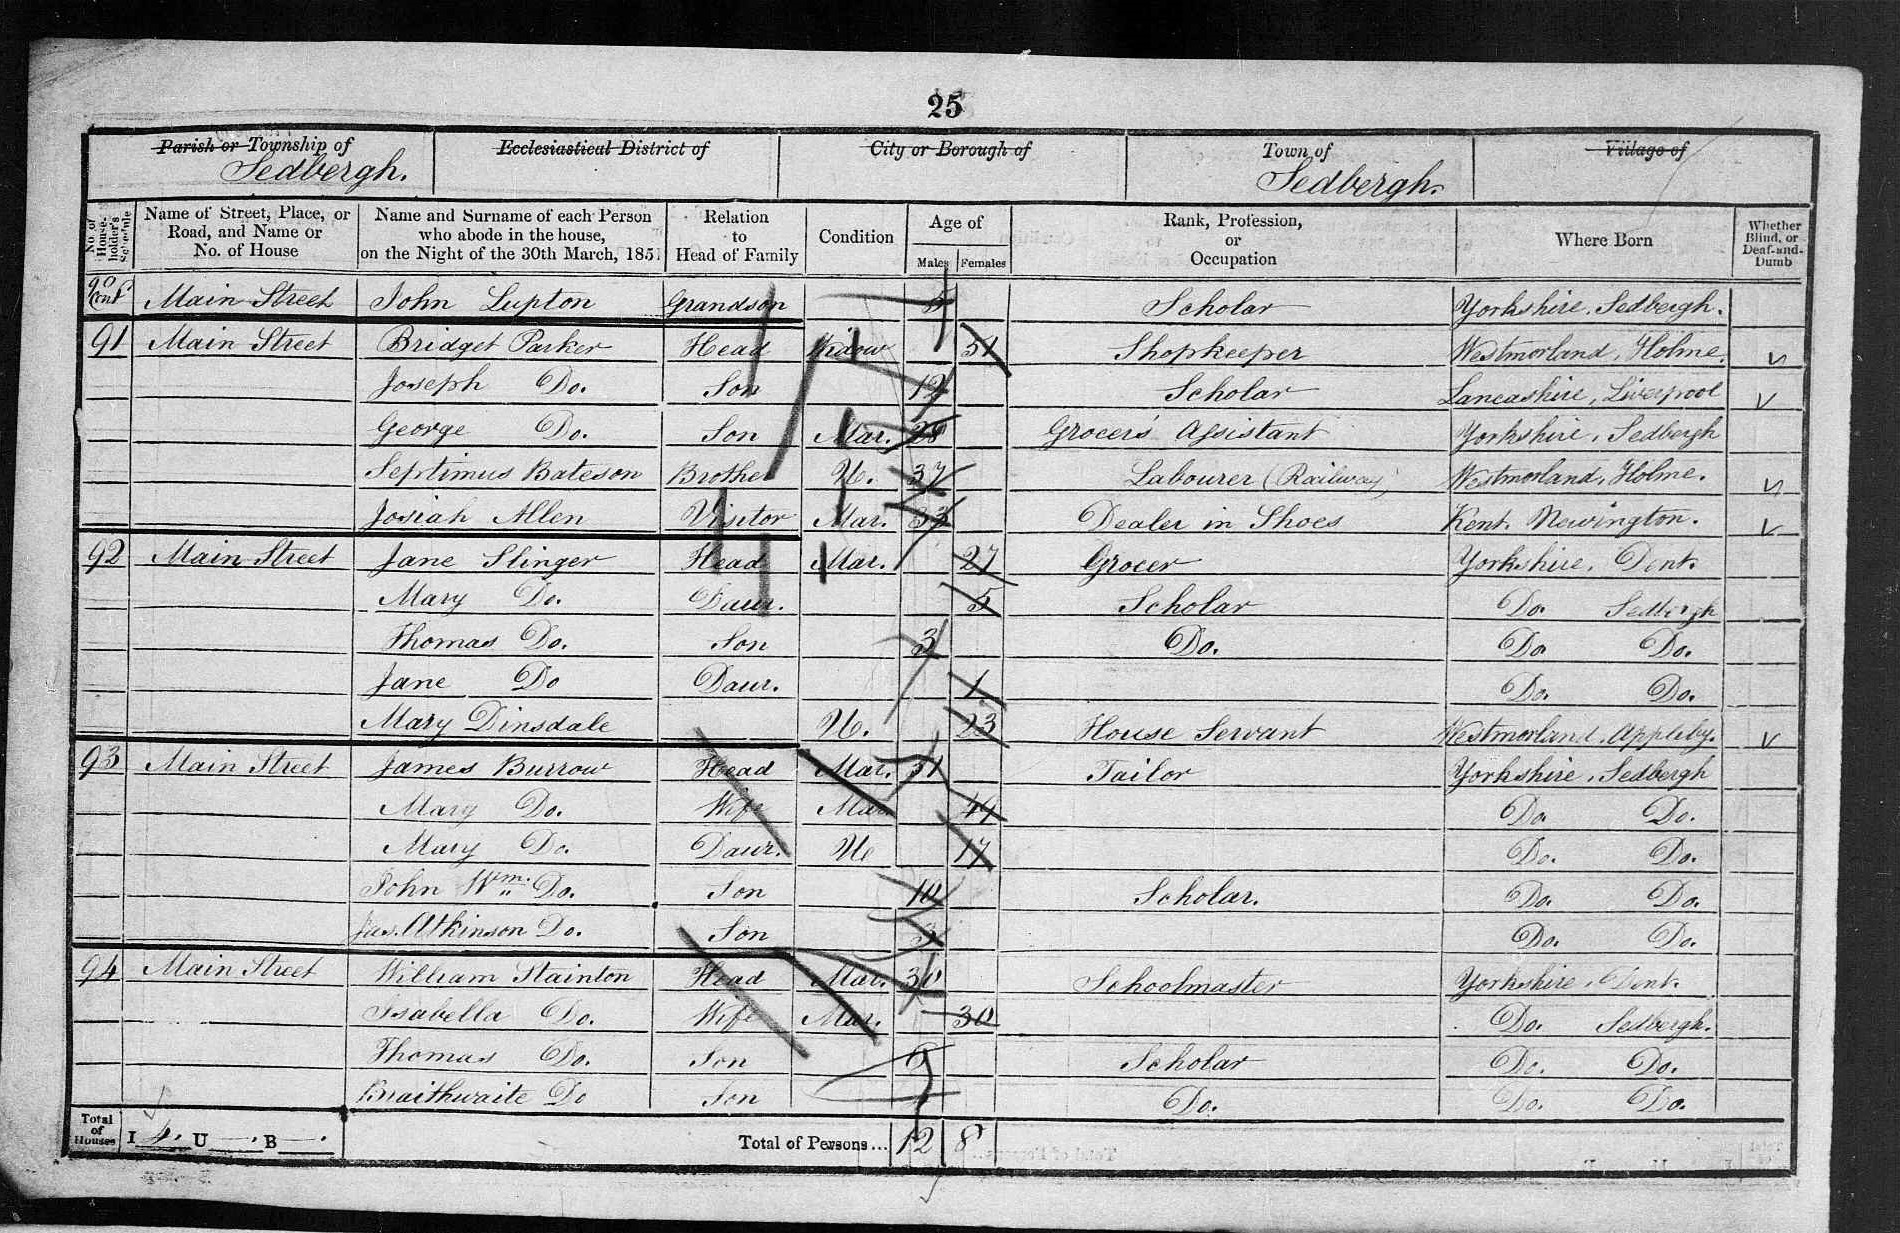 25
Parish or Township of Ecclesiastical District of City or Borough of Town of Village of
Sedbergh. Sedbergh.
No. of House-holder's Schedule Name of Street, Place, or Road, and Name or No. of House Name and Surname of each Person who abode in the house, on the Night of the 30th March, 1851 Relation to Head of Family Condition Age of Males Females Rank, Profession, or Occupation Where Born Whether Blind, or Deaf-and-Dumb
90 Cont Main Street John Lupton Grandson Scholar Yorkshire, Sedbergh.
91 Main Street Bridget Parker Head Widow 51 Shopkeeper Westmorland, Holme.
Joseph Do. Son 12 Scholar Lancashire, Liverpool
George Do. Son Mar. 28 Grocer's Assistant Yorkshire, Sedbergh
Septimus Bateson Brother U. 37 Labourer (Railway) Westmorland, Holme.
Josiah Allen Visitor Mar. Dealer in Shoes Kent, Newington.
92 Main Street Jane Slinger Head Mar. 27 Grocer Yorkshire, Dent.
Mary Do. Daur. 5 Scholar Do. Sedbergh
Thomas Do. Son 3 Do. Do Do.
Jane Do Daur. 1 Do. Do.
Mary Dinsdale U. 23 House Servant Westmorland, Appleby.
93 Main Street James Burrow Head Mar. 51 Tailor Yorkshire, Sedbergh
Mary Do. Wife Mar 44 Do. Do.
Mary Do. Daur. U 17 Do. Do.
John Wm. Do. Son 10 Scholar. Do. Do.
Jas. Atkinson Do. Son 3 Do. Do.
94 Main Street William Stainton Head Mar. 30 Schoolmaster Yorkshire, Dent.
Isabella Do. Wife Mar. 30 Do. Sedbergh.
Thomas Do. Son Scholar Do. Do.
Braithwaite Do Son Do. Do. Do.
Total of Houses I 4. U —. B —. Total of Persons... 12 8